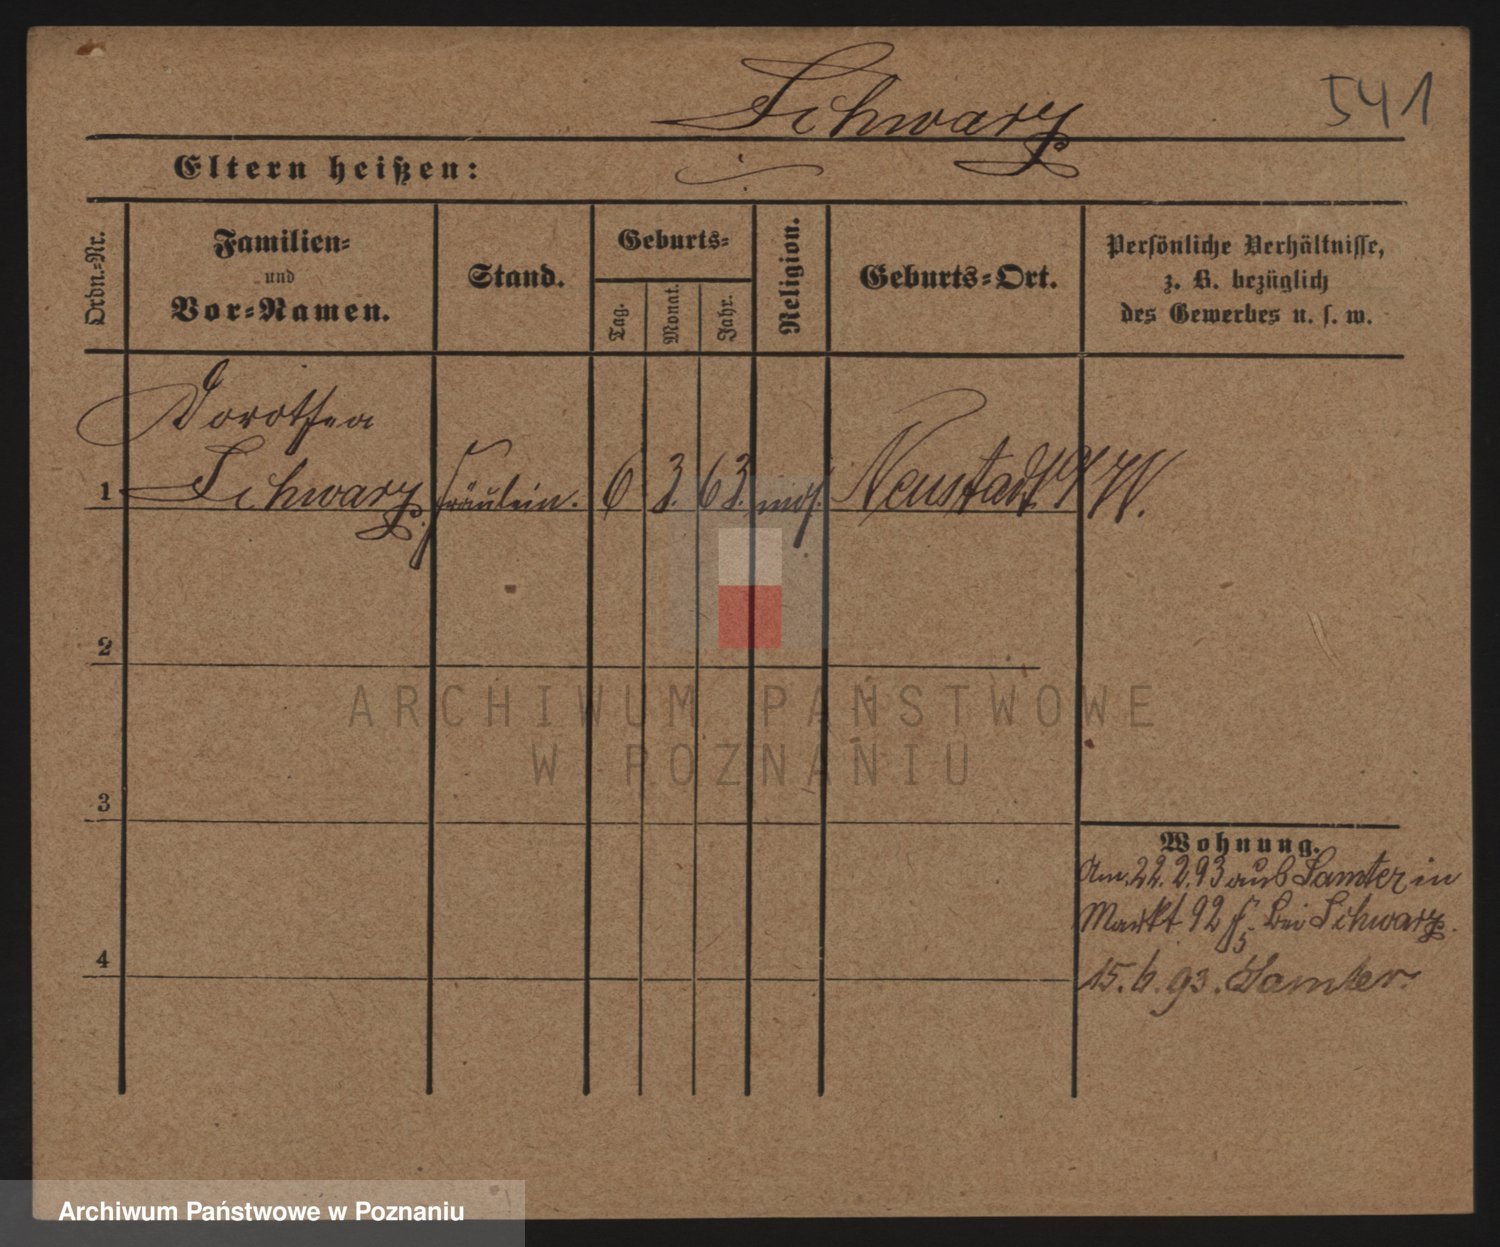 Schwarz
541
Eltern heißen:
Ordn.-Nr.
Familien-
und
Vor-Namen.
Stand.
Geburts-
Tag.
Monat.
Jahr.
Religion.
Geburts-Ort.
Persönliche Verhältnisse,
z. B. bezüglich
des Gewerbes u. s. w.
Dorothea
1 Schwarz Fräulein. 6 3. 63. mos. Neustadt a/W.
2
ARCHIWUM PAŃSTWOWE
W POZNANIU
3
Wohnung.
Am 22.2.93 aus Samter in
Markt 92 bei Schwarz.
4
15.6.93. Samter.
Archiwum Państwowe w Poznaniu